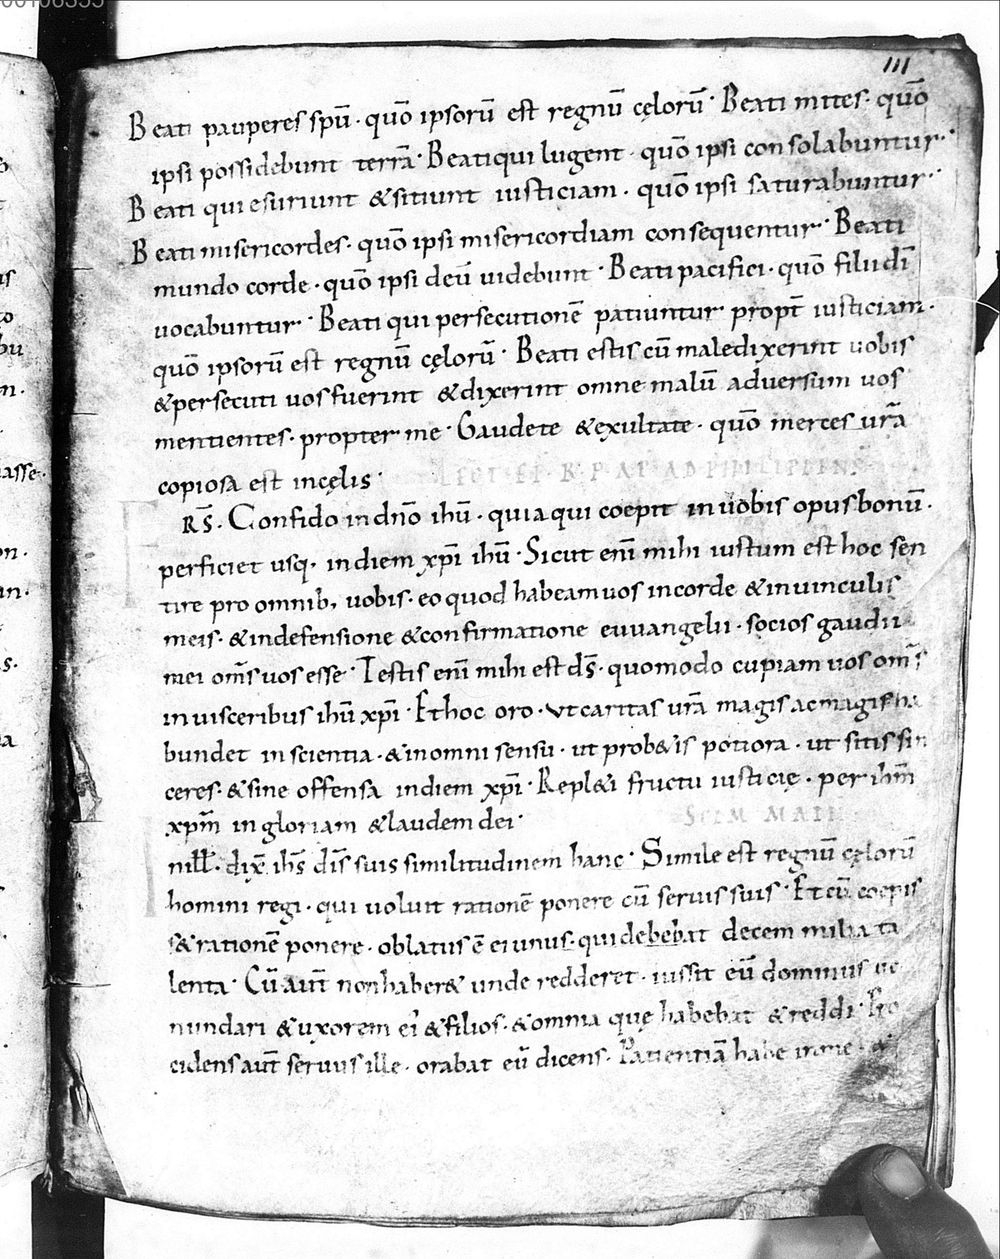 III
Beati pauperes spū · quō ipsorū est regnū cęlorū · Beati mites · quō
ipsi possidebunt terrā · Beati qui lugent · quō ipsi consolabuntur ·
Beati qui esuriunt & sitiunt iusticiam · quō ipsi saturabuntur ·
Beati misericordes · quō ipsi misericordiam consequentur · Beati
mundo corde · quō ipsi deū uidebunt · Beati pacifici · quō filii dī
uocabuntur · Beati qui persecutionē patiuntur propt̄ iusticiam ·
quō ipsorū est regnū cęlorū · Beati estis cū maledixerint uobis
& persecuti uos fuerint & dixerint omne malū adversum vos
mentientes · propter me · Gaudete & exultate · quō merces urā
copiosa est in cęlis · LECT EP B P AP AD PHILIPPENS
RS̄ · Confido in dn̄o ihū · quia qui coepit in uobis opus bonū ·
perficiet usq; in diem xp̄i ihū · Sicut enī mihi iustum est hoc sen
tire pro omnib; uobis · eo quod habeam uos in corde & in uinculis
meis · & in defensione & confirmatione euuangelii · socios gaudii
mei om̄s uos esse · Testis enī mihi est ds̄ · quomodo cupiam uos om̄s
in uisceribus ihū xp̄i · Et hoc oro · ut caritas urā magis ac magis ha
bundet in scientia · & in omni sensu · ut prob&is potiora · ut sitis sin
ceres · & sine offensa in diem xp̄i · Repl&i fructu iusticię · per ihm̄
xpm̄ in gloriam & laudem dei · SCDM MATH
nill̄ · dix̄ ihs̄ dīs suis similitudinem hanc · Simile est regnū cęlorū
homini regi · qui uoluit rationē ponere cū seruis suis · Et cū coepis
s& rationē ponere · oblatus ē ei unus · qui debebat decem milia ta
lenta · Cū aut̄ non haber& unde redderet · iussit eū dominus ue
nundari & uxorem ei' & filios · & omnia quę habebat & reddi · Pro
cidens aut̄ seruus ille · orabat eū dicens · Patientiā habe in me · &